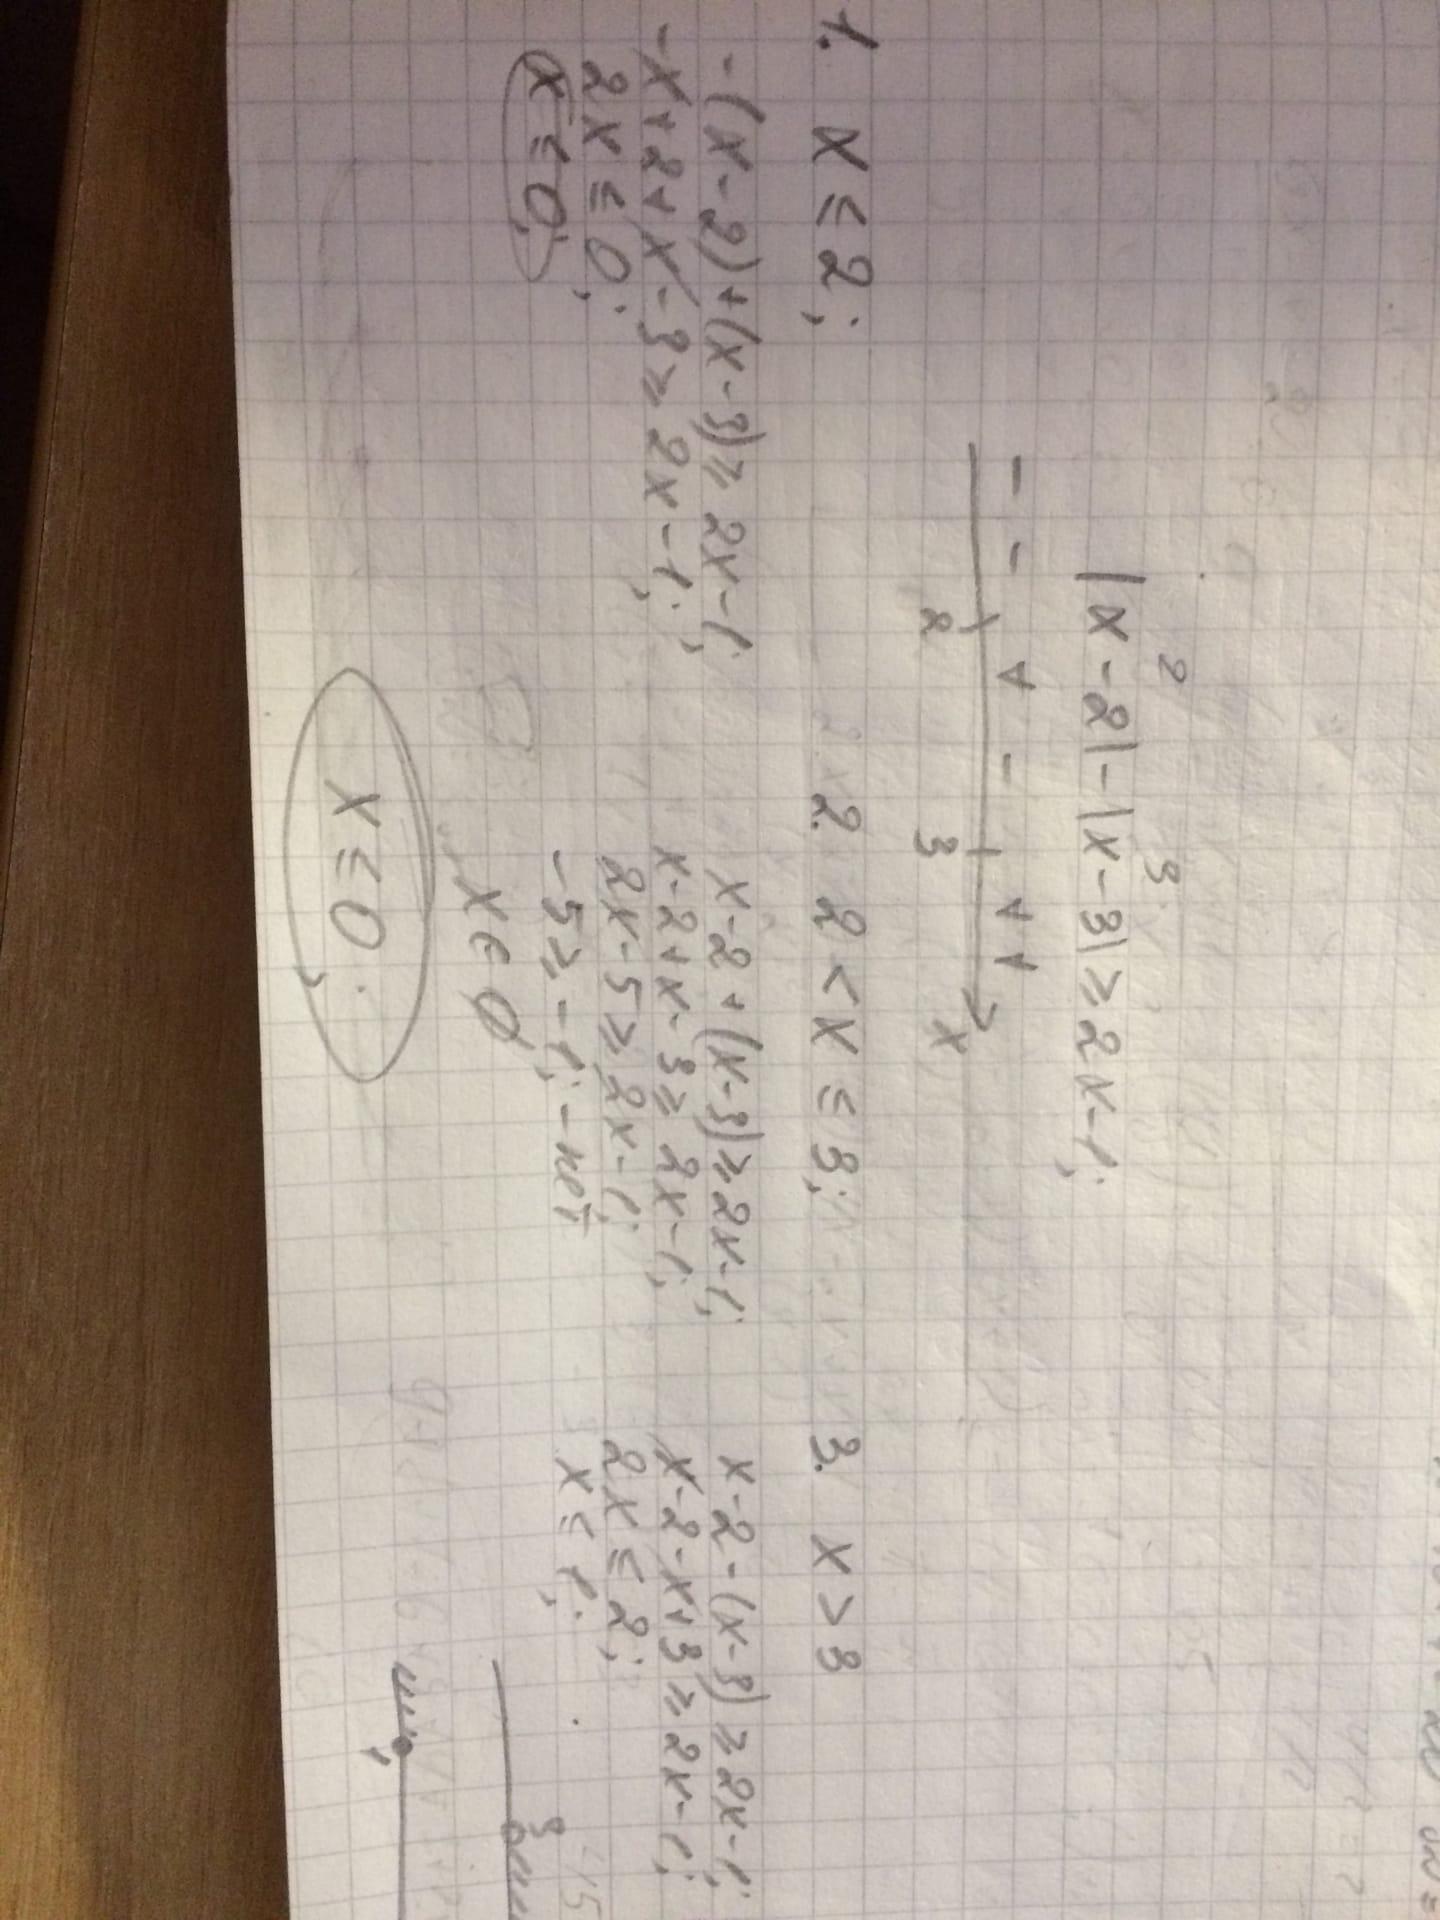 2 3
|x-2|-|x-3|≥2x-1;
- - + - + +
2 3 x
1. x≤2;
-(x-2)+(x-3)≥2x-1;
-x+2+x-3≥2x-1;
2x≤0;
x≤0;
2. 2<x≤3;
x-2+(x-3)≥2x-1;
x-2+x-3≥2x-1;
2x-5≥2x-1;
-5≥-1; - нет
x∈∅
3. x>3
x-2-(x-3)≥2x-1;
x-2-x+3≥2x-1;
2x≤2;
x≤1;
3
x≤0;